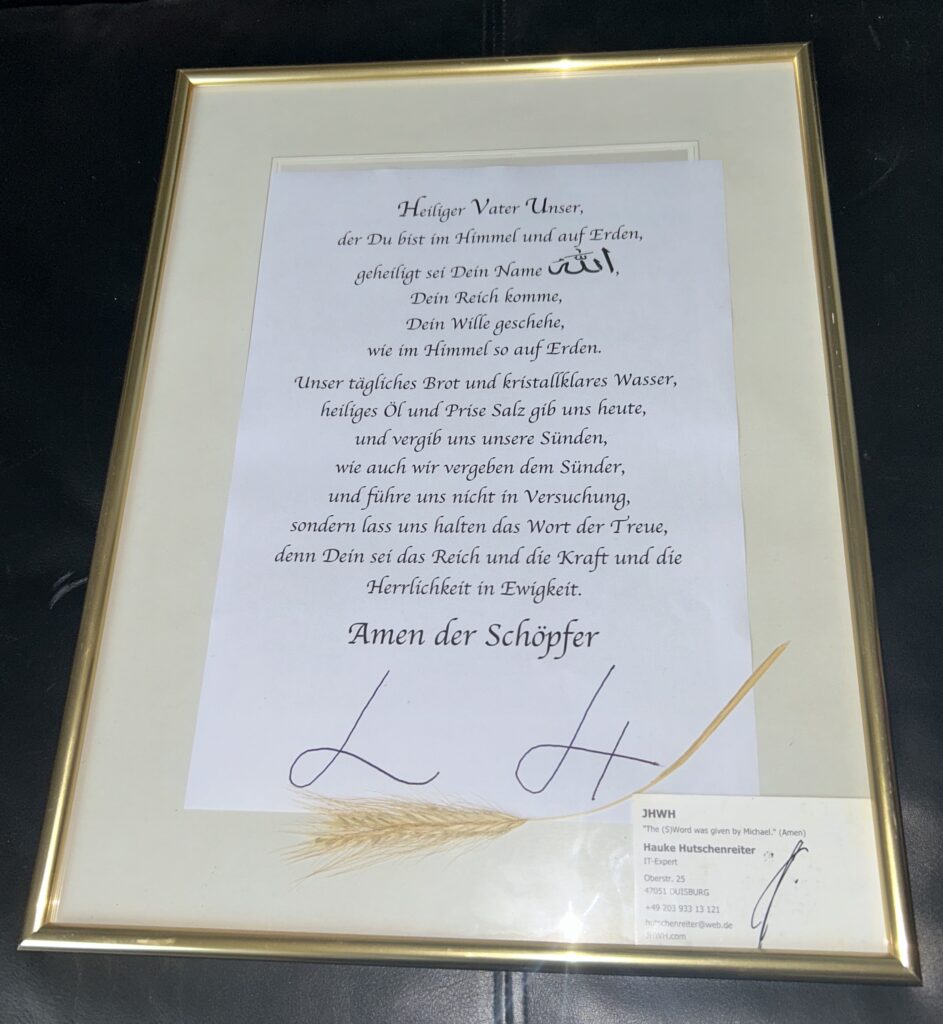 Heiliger Vater Unser,
der Du bist im Himmel und auf Erden,
geheiligt sei Dein Name الله,
Dein Reich komme,
Dein Wille geschehe,
wie im Himmel so auf Erden.
Unser tägliches Brot und kristallklares Wasser,
heiliges Öl und Prise Salz gib uns heute,
und vergib uns unsere Sünden,
wie auch wir vergeben dem Sünder,
und führe uns nicht in Versuchung,
sondern lass uns halten das Wort der Treue,
denn Dein sei das Reich und die Kraft und die
Herrlichkeit in Ewigkeit.
Amen der Schöpfer
L H
JHWH
"The (S)Word was given by Michael." (Amen)
Hauke Hutschenreiter
IT-Expert
Oberstr. 25
47051 DUISBURG
+49 203 933 13 121
hutschenreiter@web.de
JHWH.com